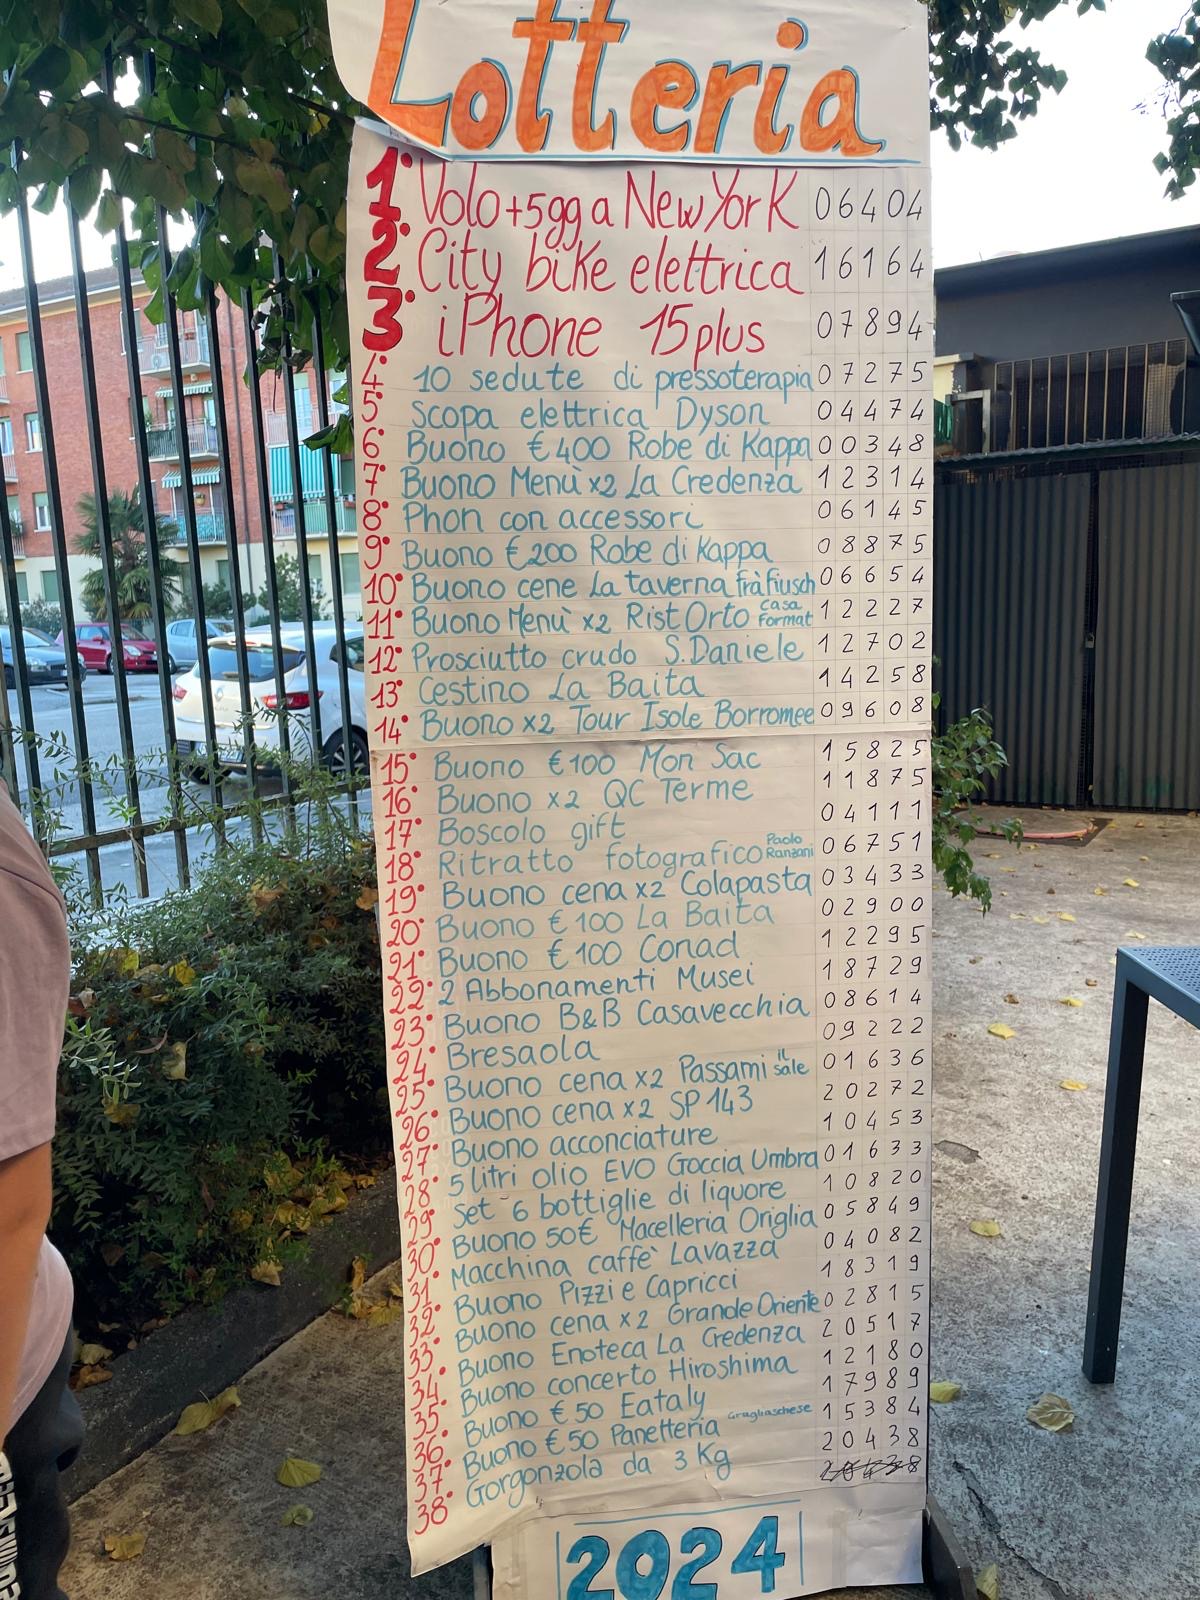 Lotteria
1° Volo+5gg a New York 06404
2° City bike elettrica 16164
3° iPhone 15 plus 07894
4° 10 sedute di pressoterapia 07275
5° Scopa elettrica Dyson 04474
6° Buono €400 Robe di Kappa 00348
7° Buono Menù x2 La Credenza 12314
8° Phon con accessori 06145
9° Buono €200 Robe di Kappa 08875
10° Buono cene La taverna Frà Fiusch 06654
11° Buono Menù x2 Rist Orto Casa Format 12227
12° Prosciutto crudo S.Daniele 12702
13° Cestino La Baita 14258
14° Buono x2 Tour Isole Borromee 09608
15° Buono €100 Mon Sac 15825
16° Buono x2 QC Terme 11875
17° Boscolo gift 04111
18° Ritratto fotografico Paolo Ranzani 06751
19° Buono cena x2 Colapasta 03433
20° Buono €100 La Baita 02900
21° Buono €100 Conad 12295
22° 2 Abbonamenti Musei 18729
23° Buono B&B Casavecchia 08614
24° Bresaola 09222
25° Buono cena x2 Passami il sale 01636
26° Buono cena x2 SP143 20272
27° Buono acconciature 10453
28° 5 litri olio EVO Goccia Umbra 01633
29° Set 6 bottiglie di liquore 10820
30° Buono 50€ Macelleria Origlia 05849
31° Macchina caffè Lavazza 04082
32° Buono Pizzi e Capricci 18319
33° Buono cena x2 Grande Oriente 02815
34° Buono Enoteca La Credenza 20517
35° Buono concerto Hiroshima 12180
36° Buono €50 Eataly 17989
37° Buono €50 Panetteria Grugliaschese 15384
38° Gorgonzola da 3 Kg 20438
2024